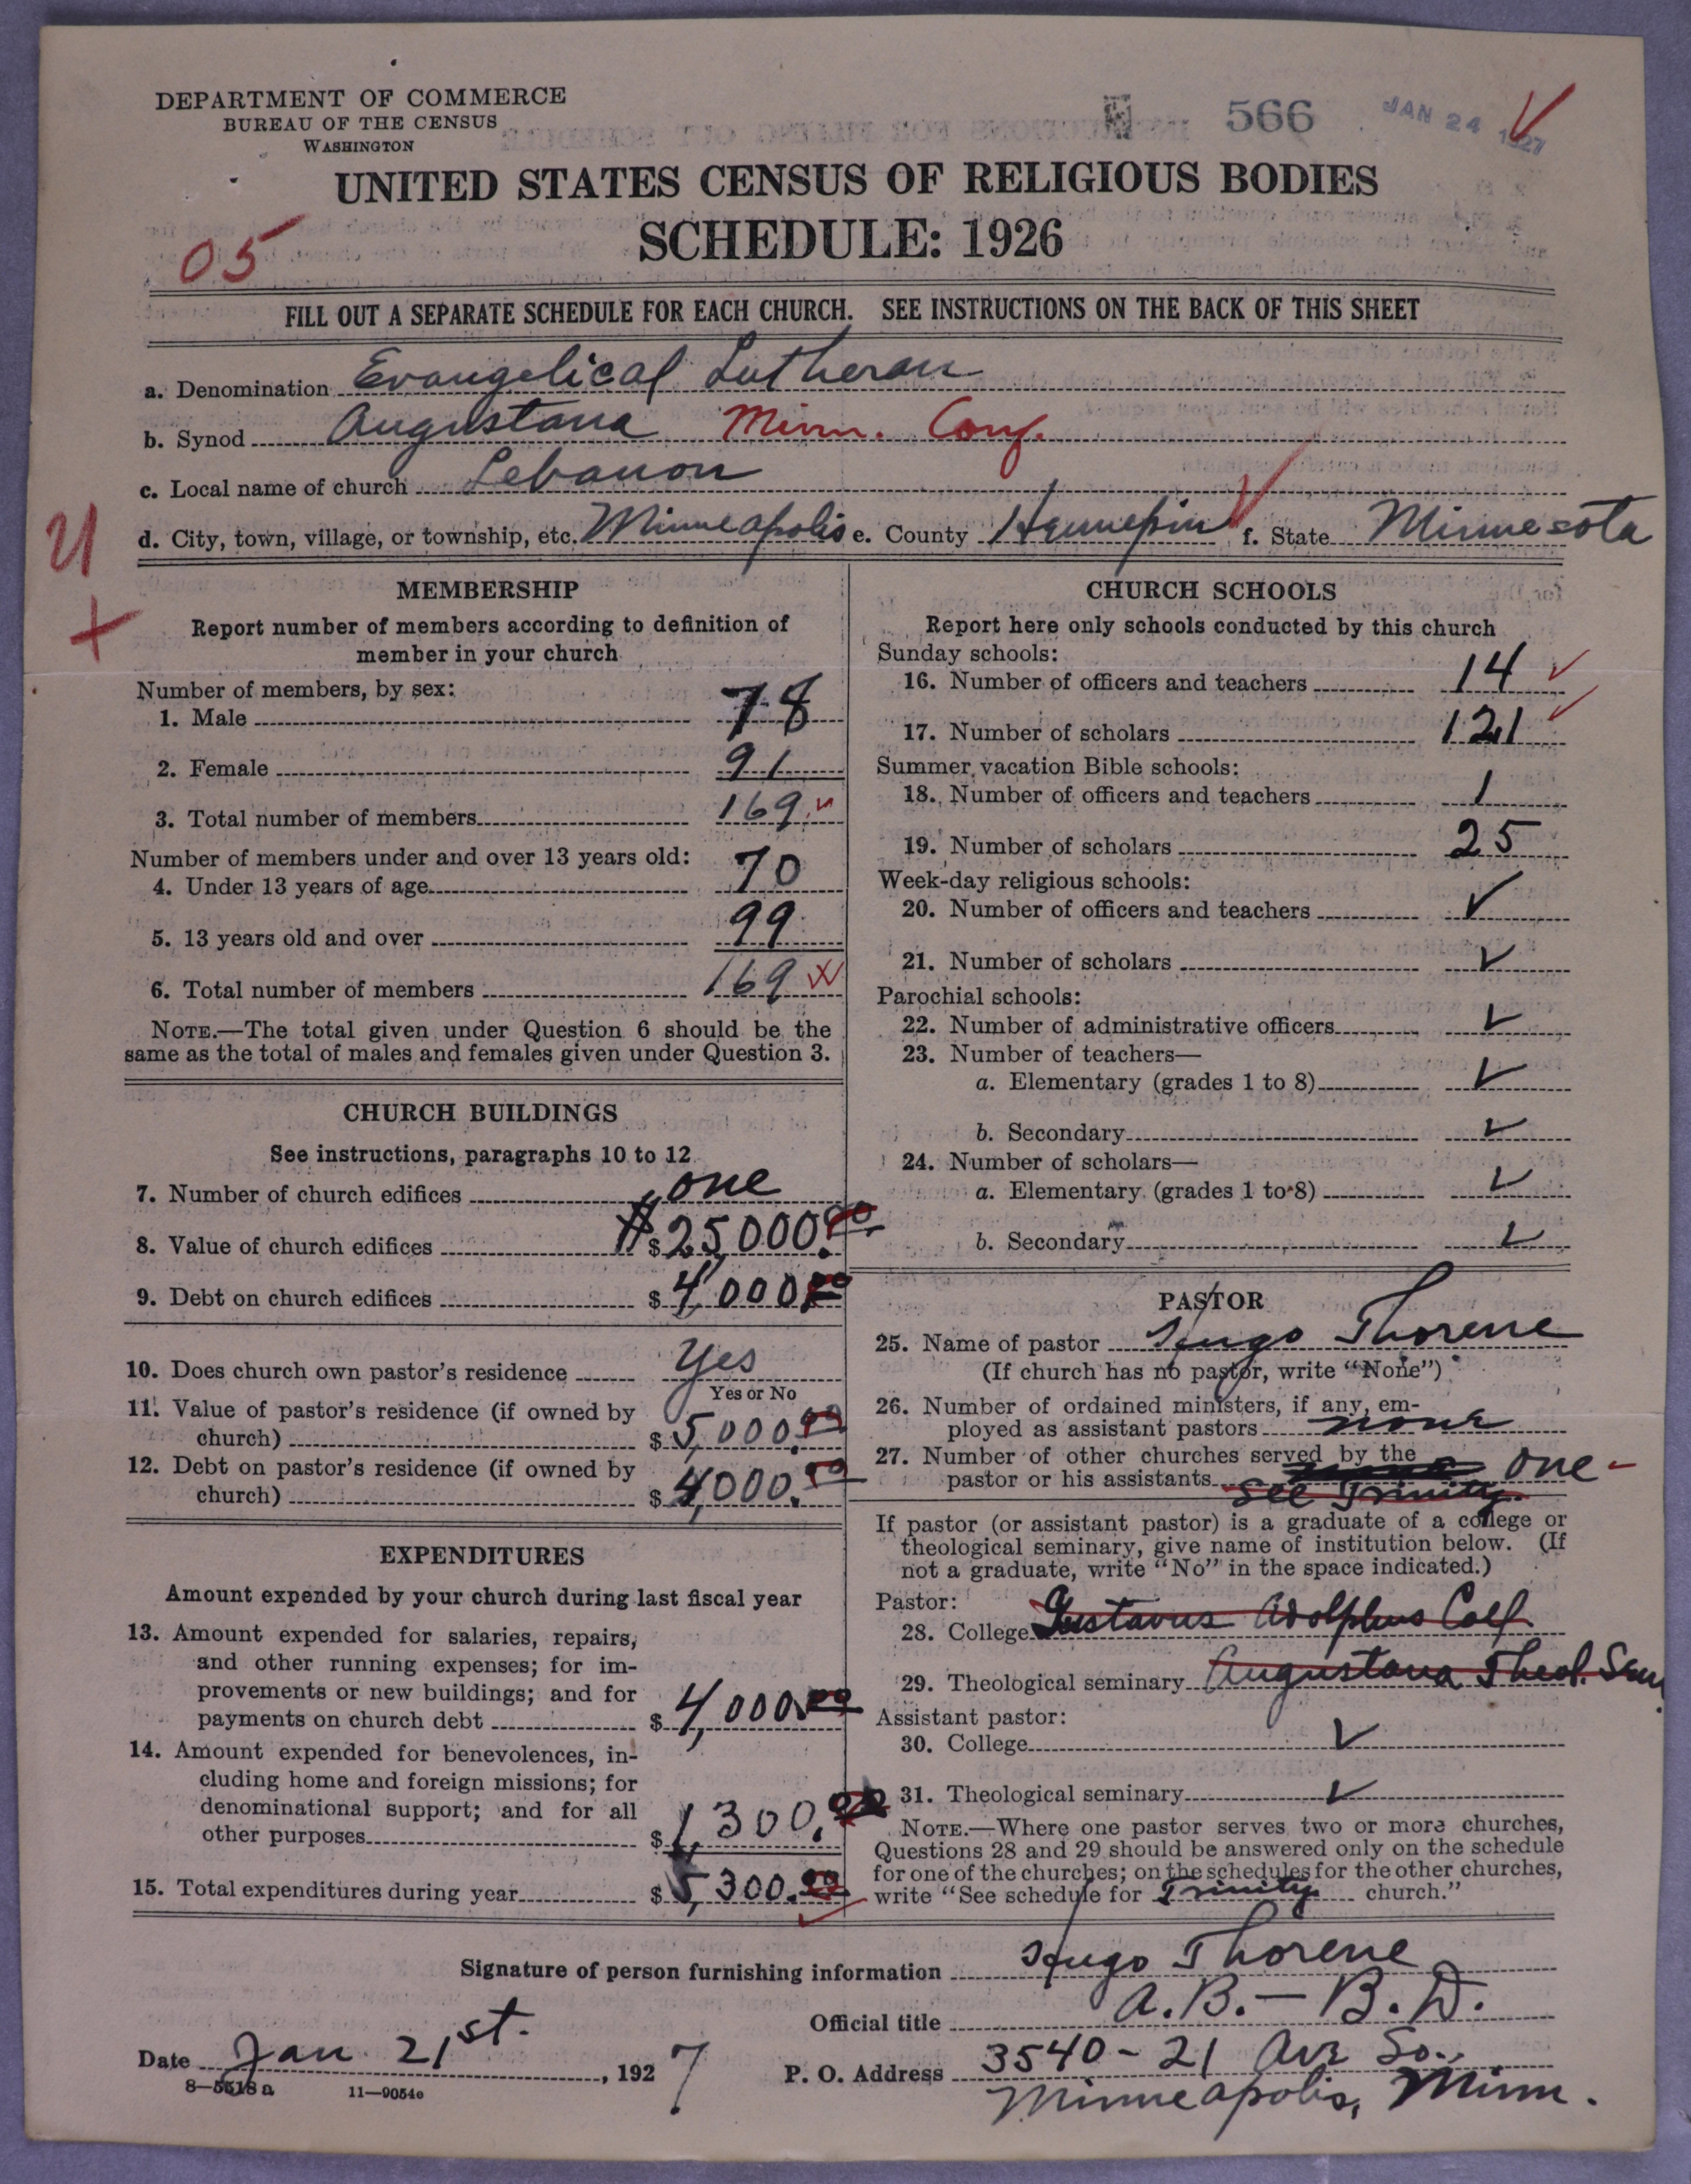 DEPARTMENT OF COMMERCE
BUREAU OF THE CENSUS
WASHINGTON
566
JAN 24 1927
UNITED STATES CENSUS OF RELIGIOUS BODIES
SCHEDULE: 1926
05
FILL OUT A SEPARATE SCHEDULE FOR EACH CHURCH. SEE INSTRUCTIONS ON THE BACK OF THIS SHEET
a. Denomination Evangelical Lutheran
b. Synod Augustana Minn. Conf.
c. Local name of church Lebanon
d. City, town, village, or township, etc. Minneapolis e. County Hennepin f. State Minnesota
U
MEMBERSHIP
Report number of members according to definition of
member in your church
Number of members, by sex:
1. Male 78
2. Female 91
3. Total number of members 169
Number of members under and over 13 years old:
4. Under 13 years of age 70
5. 13 years old and over 99
6. Total number of members 169
NOTE.—The total given under Question 6 should be the
same as the total of males and females given under Question 3.
CHURCH BUILDINGS
See instructions, paragraphs 10 to 12
7. Number of church edifices one
8. Value of church edifices $ $25,000.00
9. Debt on church edifices $ 4,000.00
10. Does church own pastor's residence Yes
Yes or No
11. Value of pastor's residence (if owned by
church) $ 5,000.00
12. Debt on pastor's residence (if owned by
church) $ 4,000.00
EXPENDITURES
Amount expended by your church during last fiscal year
13. Amount expended for salaries, repairs,
and other running expenses; for im-
provements or new buildings; and for
payments on church debt $ 4,000.00
14. Amount expended for benevolences, in-
cluding home and foreign missions; for
denominational support; and for all
other purposes $ 1,300.00
15. Total expenditures during year $ 5,300.00
CHURCH SCHOOLS
Report here only schools conducted by this church
Sunday schools:
16. Number of officers and teachers 14
17. Number of scholars 121
Summer vacation Bible schools:
18. Number of officers and teachers 1
19. Number of scholars 25
Week-day religious schools:
20. Number of officers and teachers ✓
21. Number of scholars ✓
Parochial schools:
22. Number of administrative officers ✓
23. Number of teachers—
a. Elementary (grades 1 to 8) ✓
b. Secondary ✓
24. Number of scholars—
a. Elementary (grades 1 to 8) ✓
b. Secondary ✓
PASTOR
25. Name of pastor Hugo Thorene
(If church has no pastor, write "None")
26. Number of ordained ministers, if any, em-
ployed as assistant pastors none
27. Number of other churches served by the
pastor or his assistants one -
See Trinity
If pastor (or assistant pastor) is a graduate of a college or
theological seminary, give name of institution below. (If
not a graduate, write "No" in the space indicated.)
Pastor:
28. College Gustavus Adolphus Coll
29. Theological seminary Augustana Theol. Sem.
Assistant pastor:
30. College ✓
31. Theological seminary ✓
NOTE.—Where one pastor serves two or more churches,
Questions 28 and 29 should be answered only on the schedule
for one of the churches; on the schedules for the other churches,
write "See schedule for Trinity church."
Signature of person furnishing information Hugo Thorene
Official title A.B.— B.D.
Date Jan 21st. , 1927
P. O. Address 3540 - 21 Ave So.,
Minneapolis, Minn.
8—5518a 11—9054e